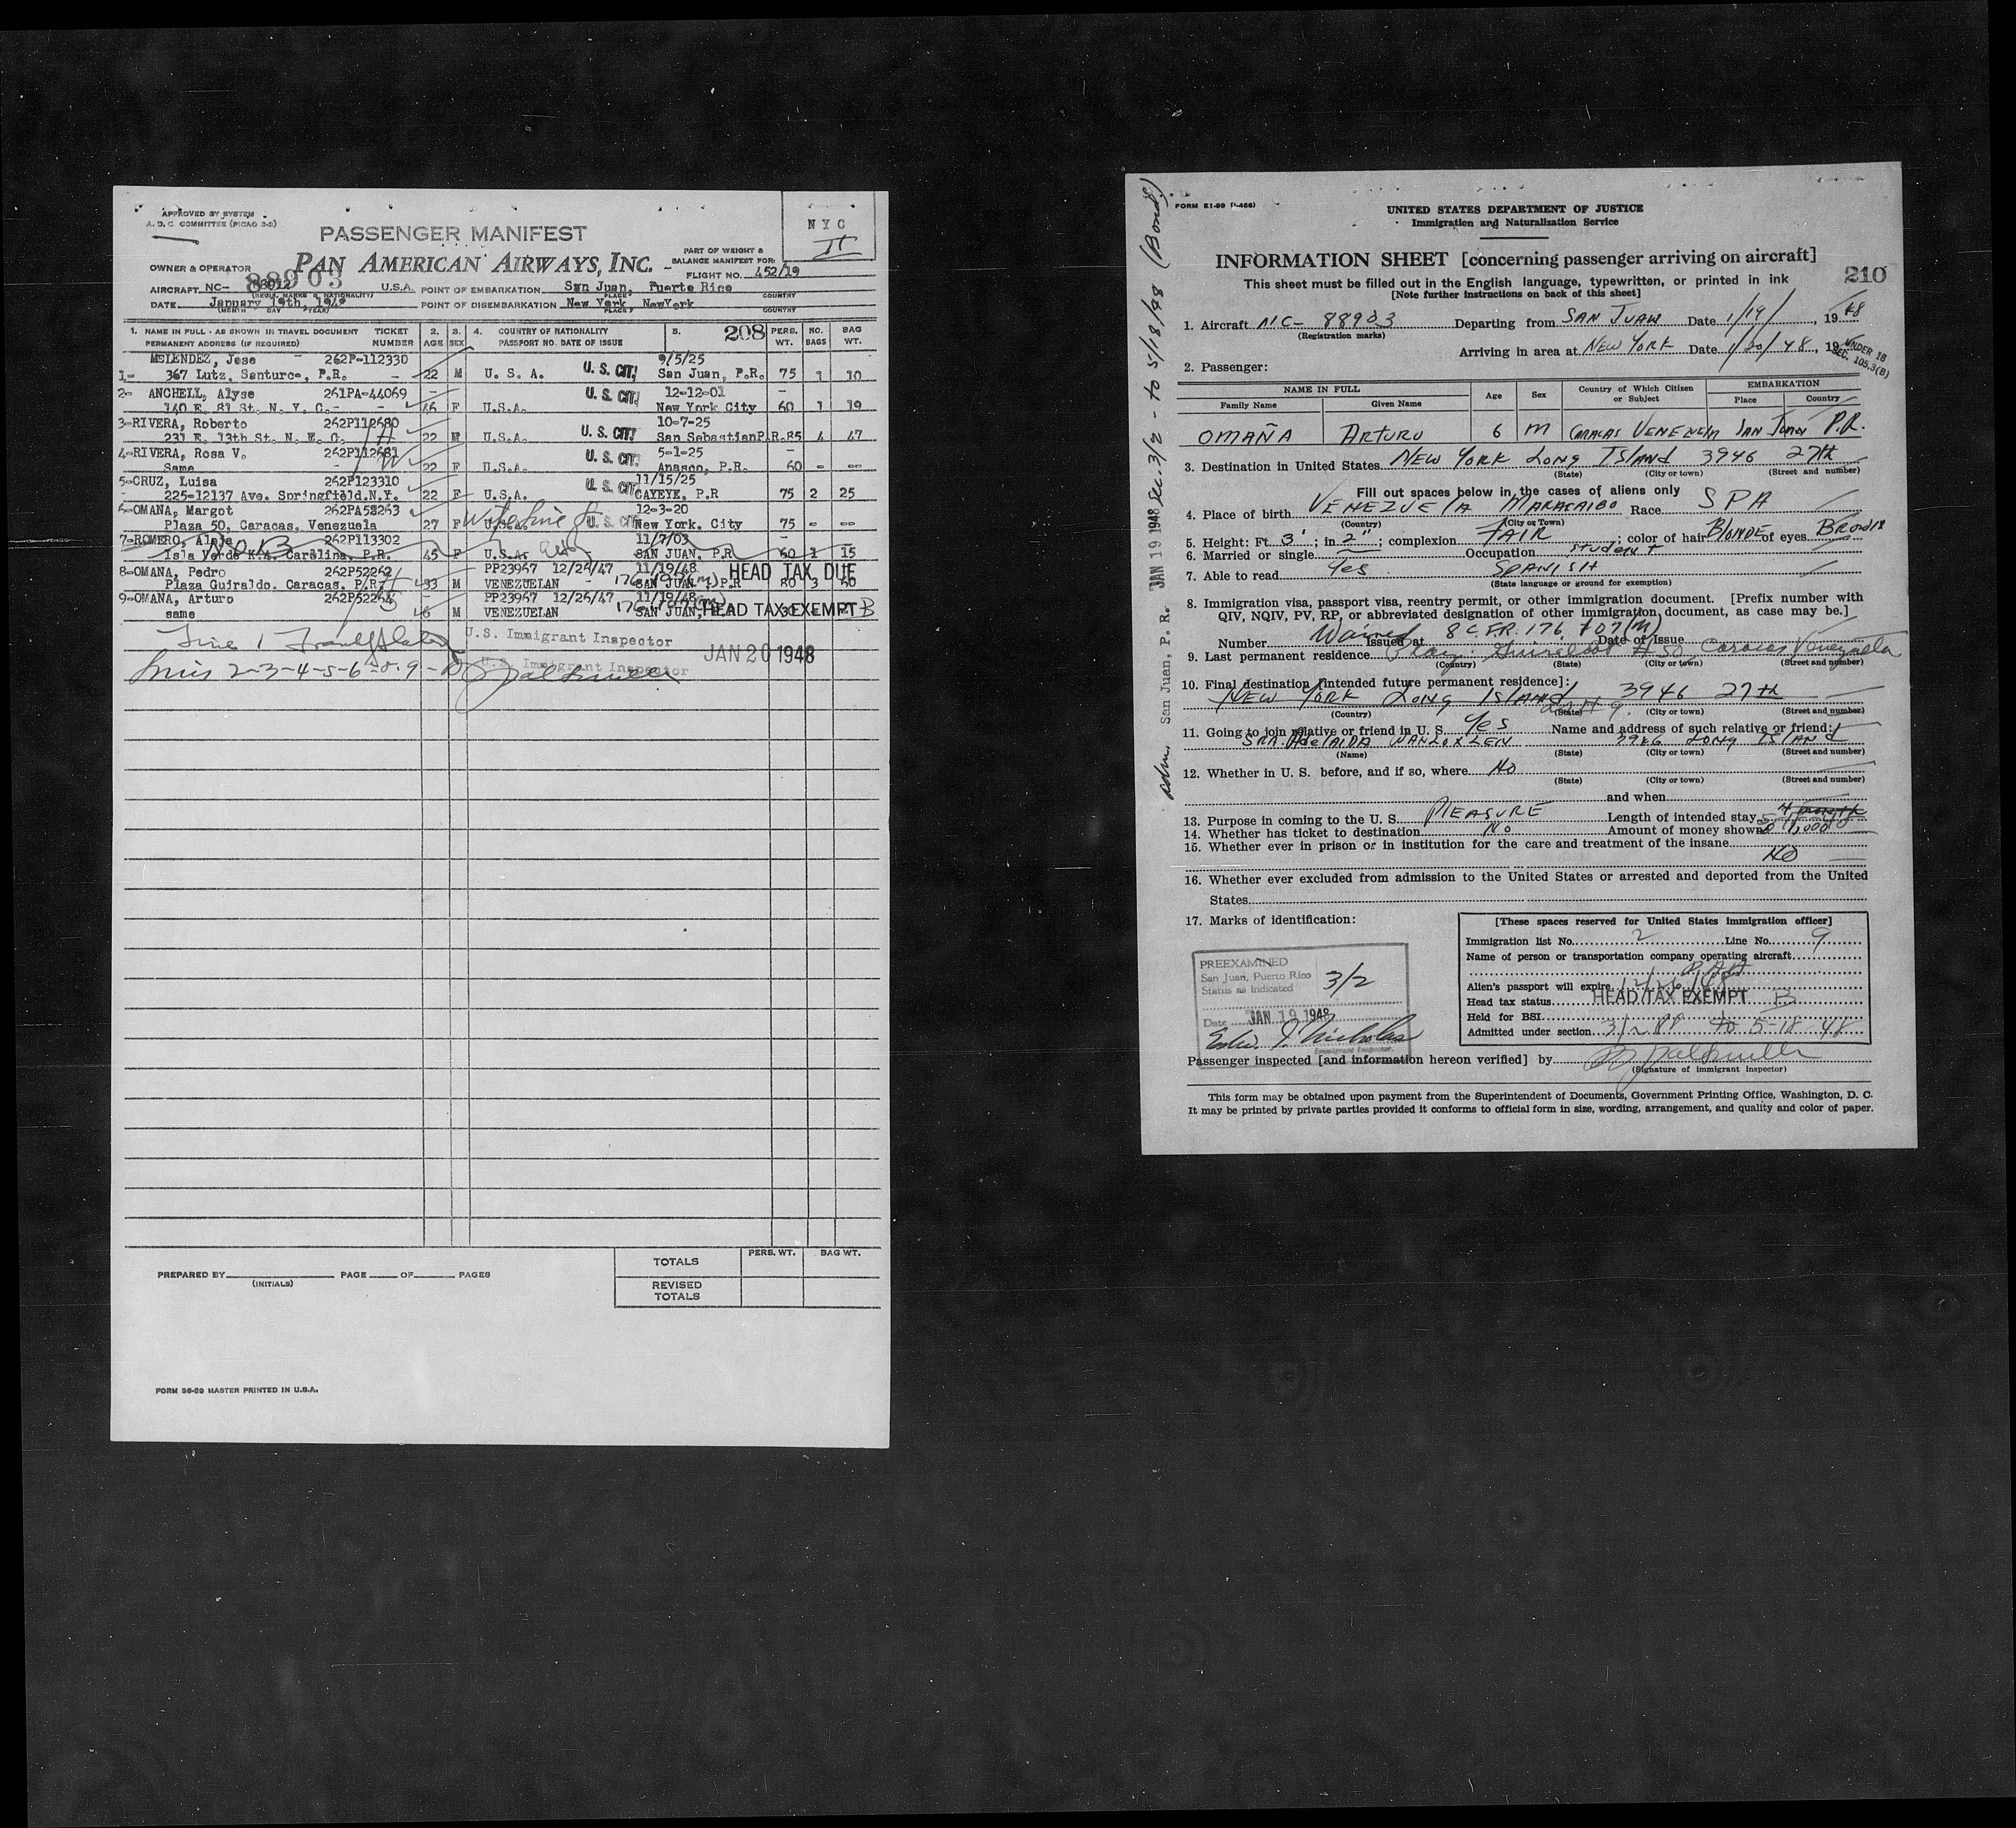 APPROVED BY SYSTEM
A. D. C. COMMITTEE (PICAO 3-2)
PASSENGER MANIFEST
NYC
II
OWNER & OPERATOR
PAN AMERICAN AIRWAYS, INC.
PART OF WEIGHT &
BALANCE MANIFEST FOR:
FLIGHT NO. 452/19
88903
AIRCRAFT NC- U.S.A. POINT OF EMBARKATION San Juan, Puerto Rico
(REGIS. MARKS & NATIONALITY) PLACE COUNTRY
DATE January 19th, 1948 POINT OF DISEMBARKATION New York NewYork
(MONTH DAY YEAR) PLACE COUNTRY
1. NAME IN FULL - AS SHOWN IN TRAVEL DOCUMENT TICKET 2. 3. 4. COUNTRY OF NATIONALITY 5. 208 PERS. NO. BAG
PERMANENT ADDRESS (IF REQUIRED) NUMBER AGE SEX PASSPORT NO. DATE OF ISSUE WT. BAGS WT.
MELENDEZ, Jose 262P-112330 9/5/25
1- 367 Lutz, Santurce, P.R. - 22 M U. S. A. U. S. CIT. San Juan, P.R. 75 1 10
2- ANCHELL, Alyse 261PA-44069 - U. S. CIT. 12-12-01 -
140 E. 81 St. N. Y. C.- - 46 F U.S.A. New York City 60 1 19
3-RIVERA, Roberto 262P112680 10-7-25
231 E. 13th St. N. Y. C. 22 M U.S.A. U. S. CIT. San Sebastian P.R. 85 4 47
4-RIVERA, Rosa V. 262P112681 5-1-25 -
Same - 22 F U.S.A. U. S. CIT. Anasco, P.R. 60 - --
5-CRUZ, Luisa 262P123310 11/15/25
225-12137 Ave. Springfield.N.Y. 22 F U.S.A. U. S. CIT. CAYEYE, P.R 75 2 25
6-OMANA, Margot 262PA52263 12-3-20
Plaza 50. Caracas. Venezuela 27 F U.S.A. U. S. CIT. New York. City 75 - --
7-ROMERO, 262P113302 11/7/03
Isla Verde K.4. Carolina. P.R. 45 F U.S.A. SAN JUAN, P.R 60 1 15
8-OMANA, Pedro 262P52262 PP23967 12/26/47 11/19/48 HEAD TAX DUE
Plaza Guiraldo. Caracas. P.R. 33 M VENEZUELAN SAN JUAN, P.R 80 3 60
9-OMANA, Arturo 262P52264 PP23967 12/26/47 11/19/48 HEAD TAX EXEMPT B
same 6 M VENEZUELAN SAN JUAN,
Line 1
U.S. Immigrant Inspector
JAN 20 1948
Lines 2-3-4-5-6-8-9-
U.S. Immigrant Inspector
TOTALS PERS. WT. BAG WT.
PREPARED BY PAGE OF PAGES
(INITIALS)
REVISED
TOTALS
FORM 36-59 MASTER PRINTED IN U.S.A.
Adm. San Juan, P. R. JAN 19 1948 Sec. 3/2 - to 5/18/48 (Bond)
UNITED STATES DEPARTMENT OF JUSTICE
Immigration and Naturalization Service
INFORMATION SHEET [concerning passenger arriving on aircraft]
210
This sheet must be filled out in the English language, typewritten, or printed in ink
[Note further instructions on back of this sheet]
1. Aircraft NC- 88903 Departing from SAN JUAN Date 1/19/, 1948
(Registration marks)
Arriving in area at NEW YORK Date 1/20/48, 19
UNDER 16
SEC. 105.3(B)
2. Passenger:
NAME IN FULL Age Sex Country of Which Citizen or Subject EMBARKATION
Family Name Given Name Place Country
OMAÑA ARTURO 6 M CARACAS VENEZUELA SAN JUAN P.R.
3. Destination in United States NEW YORK LONG ISLAND 3946 27th
(State) (City or town) (Street and number)
Fill out spaces below in the cases of aliens only
4. Place of birth VENEZUELA MARACAIBO Race SPA
(Country) (City or Town)
5. Height: Ft. 3'; in 2"; complexion FAIR; color of hair BLONDE of eyes BROWN
6. Married or single Occupation student
7. Able to read Yes SPANISH
(State language or ground for exemption)
8. Immigration visa, passport visa, reentry permit, or other immigration document. [Prefix number with
QIV, NQIV, PV, RP, or abbreviated designation of other immigration document, as case may be.]
Number Waived Issued at 8 C.F.R. 176.107(M) Date of Issue
9. Last permanent residence #50, Caracas Venezuela
(Country) (State) (City or town) (Street and number)
10. Final destination [intended future permanent residence]:
NEW YORK LONG ISLAND 3946 27th
(Country) (State) (City or town) (Street and number)
11. Going to join relative or friend in U. S. Yes Name and address of such relative or friend:
SRA. ADELAIDA 3946 LONG ISLAND
(Name) (State) (City or town) (Street and number)
12. Whether in U. S. before, and if so, where No
(State) (City or town) (Street and number)
and when
13. Purpose in coming to the U. S. PLEASURE Length of intended stay
14. Whether has ticket to destination No Amount of money shown
15. Whether ever in prison or in institution for the care and treatment of the insane
NO
16. Whether ever excluded from admission to the United States or arrested and deported from the United
States
17. Marks of identification:
PREEXAMINED
San Juan, Puerto Rico
Status as indicated 3/2
Date JAN 19 1948
Immigrant Inspector
[These spaces reserved for United States immigration officer]
Immigration list No. 2 Line No. 9
Name of person or transportation company operating aircraft
PAA
Alien's passport will expire 12/26/48
Head tax status HEAD TAX EXEMPT B
Held for BSI
Admitted under section 3/2 to 5-18-48
Passenger inspected [and information hereon verified] by
(Signature of immigrant inspector)
This form may be obtained upon payment from the Superintendent of Documents, Government Printing Office, Washington, D. C.
It may be printed by private parties provided it conforms to official form in size, wording, arrangement, and quality and color of paper.